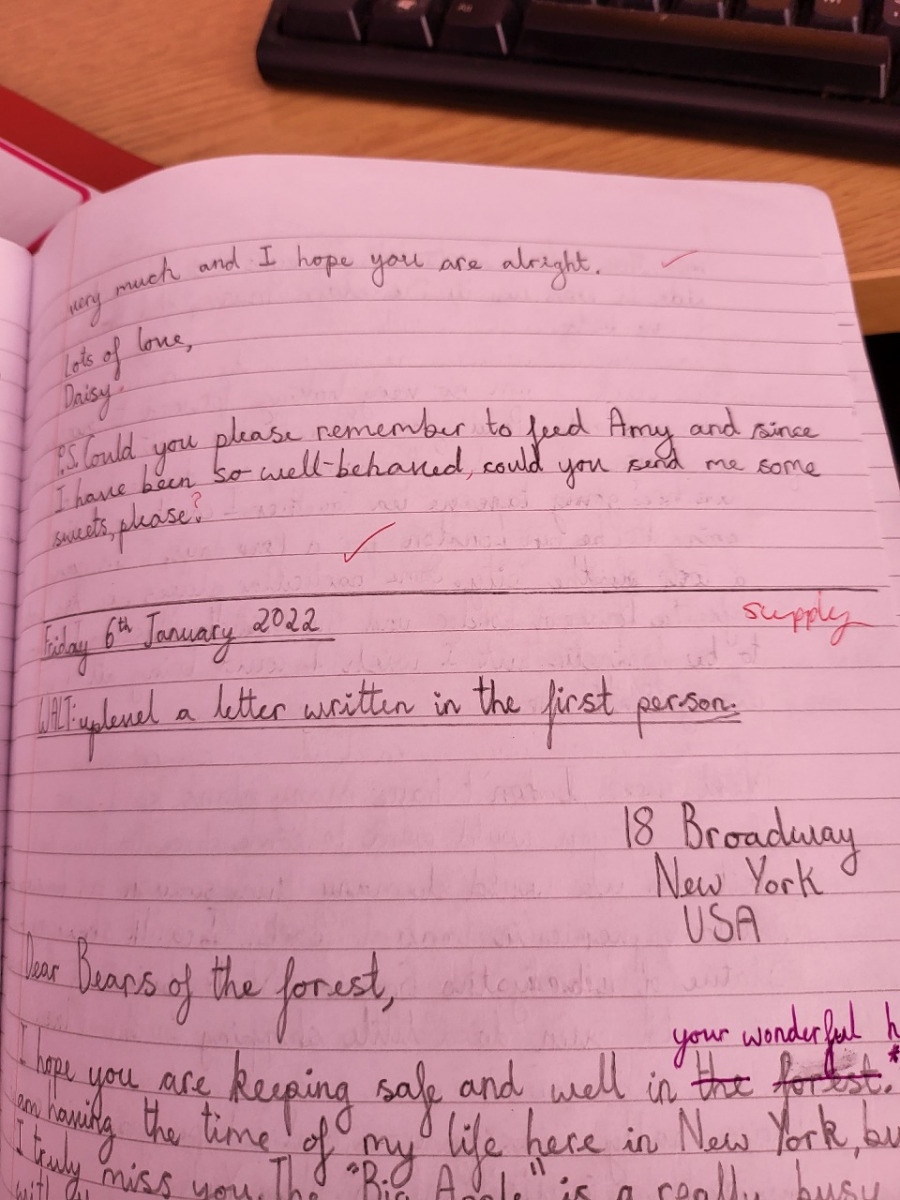 very much and I hope you are alright.
Lots of love,
Daisy.
P.S. Could you please remember to feed Amy and since
I have been so well-behaved, could you send me some
sweets, please?
supply
Friday 6th January 2022
WALT: uplevel a letter written in the first person.
18 Broadway
New York
USA
Dear Bears of the forest,
your wonderful h
I hope you are keeping safe and well in the forest. *
am having the time of my life here in New York, bu
I truly miss you. The "Big Apple" is a really busy